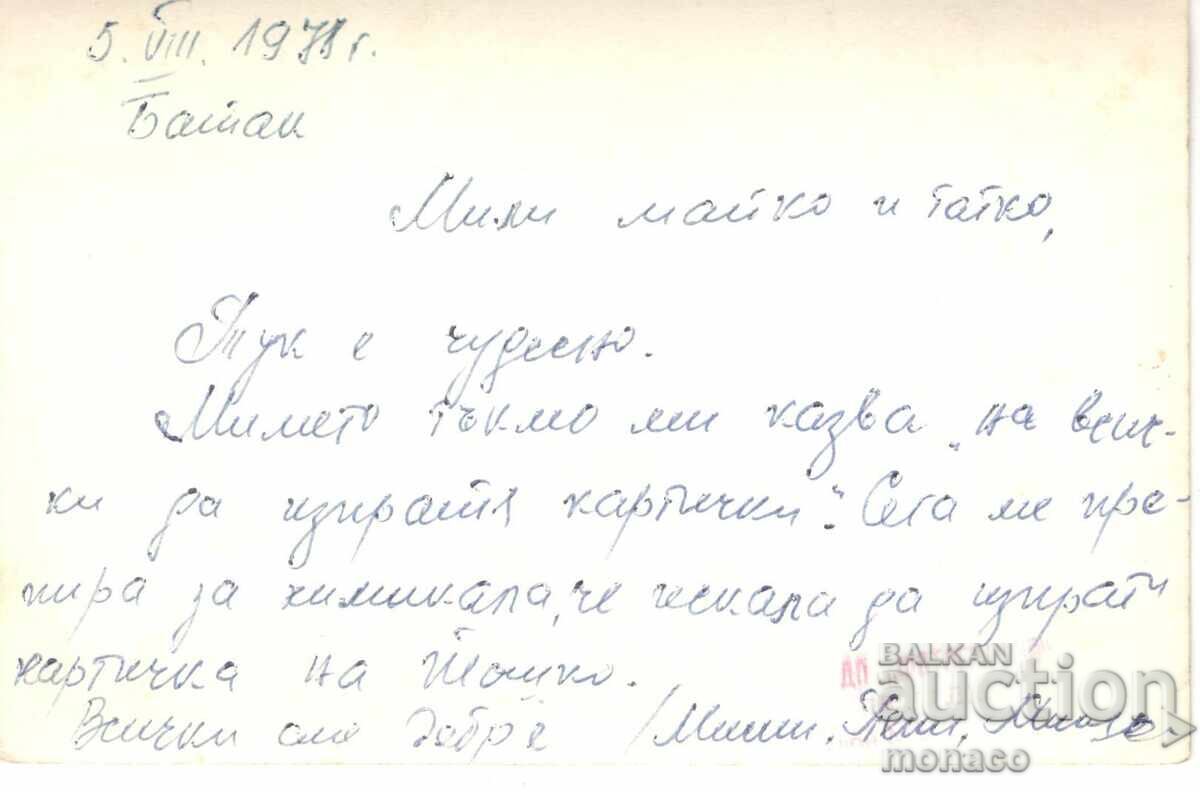 5. VIII. 1971 г.
Батак
Мили майко и татко,
Тук е чудесно.
Мимето тъкмо ми казва „на вси-
чки да изпратя картички". Сега ме пре-
пира за химикала, че искала да изпрати
картичка на Тошко.
Всички сме добре /Мими,
BALKAN
auction
monaco